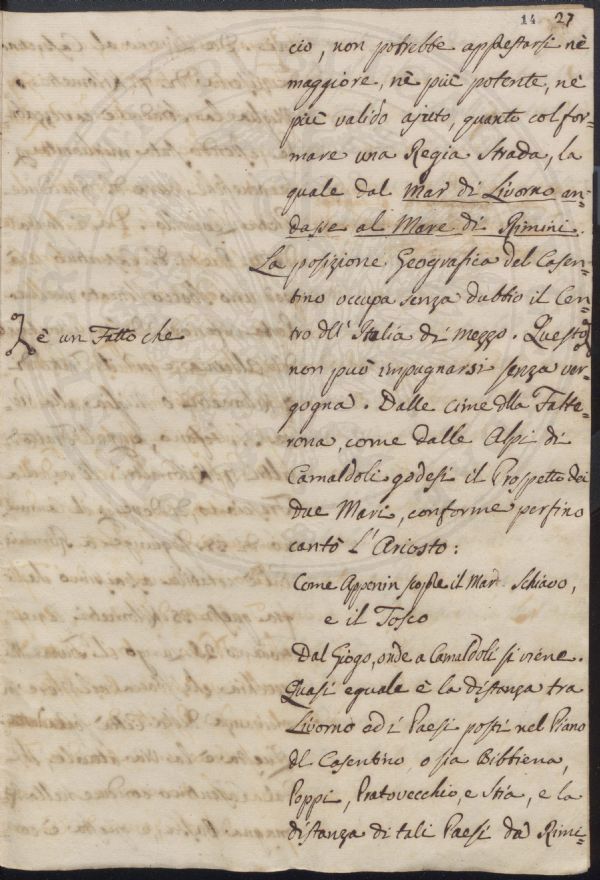 14 27
cio, non potrebbe apprestarsi nè
maggiore, nè più potente, nè
più valido ajuto, quanto col for-
mare una Regia Strada, la
quale dal Mar di Livorno an-
dasse al Mare di Rimini.
La posizione Geografica del Casen-
tino occupa senza dubbio il Cen-
tro dll' Italia di mezzo. Questo
è un Fatto che
non può impugnarsi senza ver-
gogna. Dalle cime dlla Falte-
rona, come dalle Alpi di
Camaldoli godesi il Prospetto dei
due Mari, conforme perfino
cantò l'Ariosto:
Come Appenin scopre il Mar Schiavo,
e il Tosco
Dal Giogo, onde a Camaldoli si viene.
Quasi eguale è la distanza tra
Livorno ed i Paesi posti nel Piano
dl Casentino, o sia Bibbiena,
Poppi, Pratovecchio, e Stia, e la
distanza di tali Paesi da Rimi-